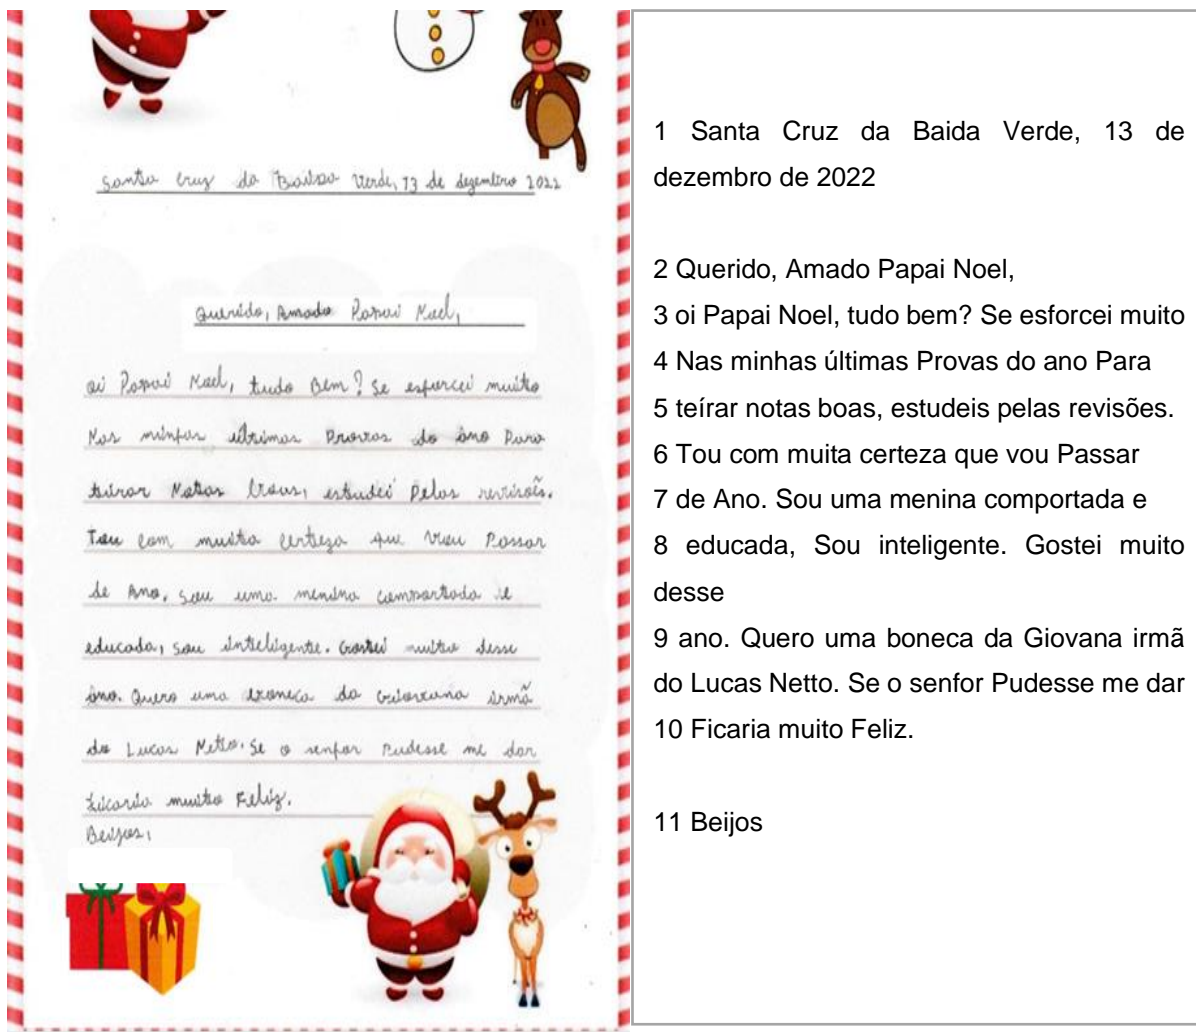 Santa Cruz da Baixa Verde, 13 de dezembro 2022
Querido, Amado Papai Noel,
oi Papai Noel, tudo Bem? Se esforcei muito
Nas minfas últimas Provas do âno Para
teirar Notas boas, estudei Pelas revisoẽs.
Tou com muita certeza que vou Passar
de Ano. Sou uma menina comportada e
educada, Sou inteligente. Gostei muito desse
âno. Quero uma boneca da Giovana irmã
do Lucas Netto. Se o senfor Pudesse me dar
ficaria muito Feliz.
Beijos,
1 Santa Cruz da Baida Verde, 13 de
dezembro de 2022
2 Querido, Amado Papai Noel,
3 oi Papai Noel, tudo bem? Se esforcei muito
4 Nas minhas últimas Provas do ano Para
5 teírar notas boas, estudeis pelas revisões.
6 Tou com muita certeza que vou Passar
7 de Ano. Sou uma menina comportada e
8 educada, Sou inteligente. Gostei muito
desse
9 ano. Quero uma boneca da Giovana irmã
do Lucas Netto. Se o senfor Pudesse me dar
10 Ficaria muito Feliz.
11 Beijos